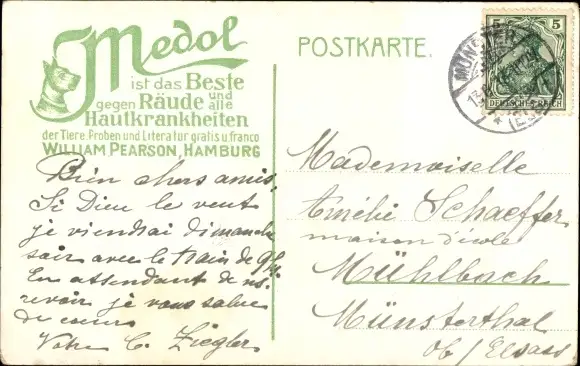 Medol
ist das Beste
gegen Räude und alle
Hautkrankheiten
der Tiere. Proben und Literatur gratis u. franco
WILLIAM PEARSON, HAMBURG
POSTKARTE.
5 5
DEUTSCHES REICH
MÜNSTER
(ELS)
Bien chers amis,
Si Dieu le veut
je viendrai dimanche
soir avec le train de
En attendant de vs.
revoir je vous salue
de cœur
Votre C. Ziegler
Mademoiselle
Amélie Schaeffer
maison d'école
Mühlbach
Münsterthal
Ob / Elsass